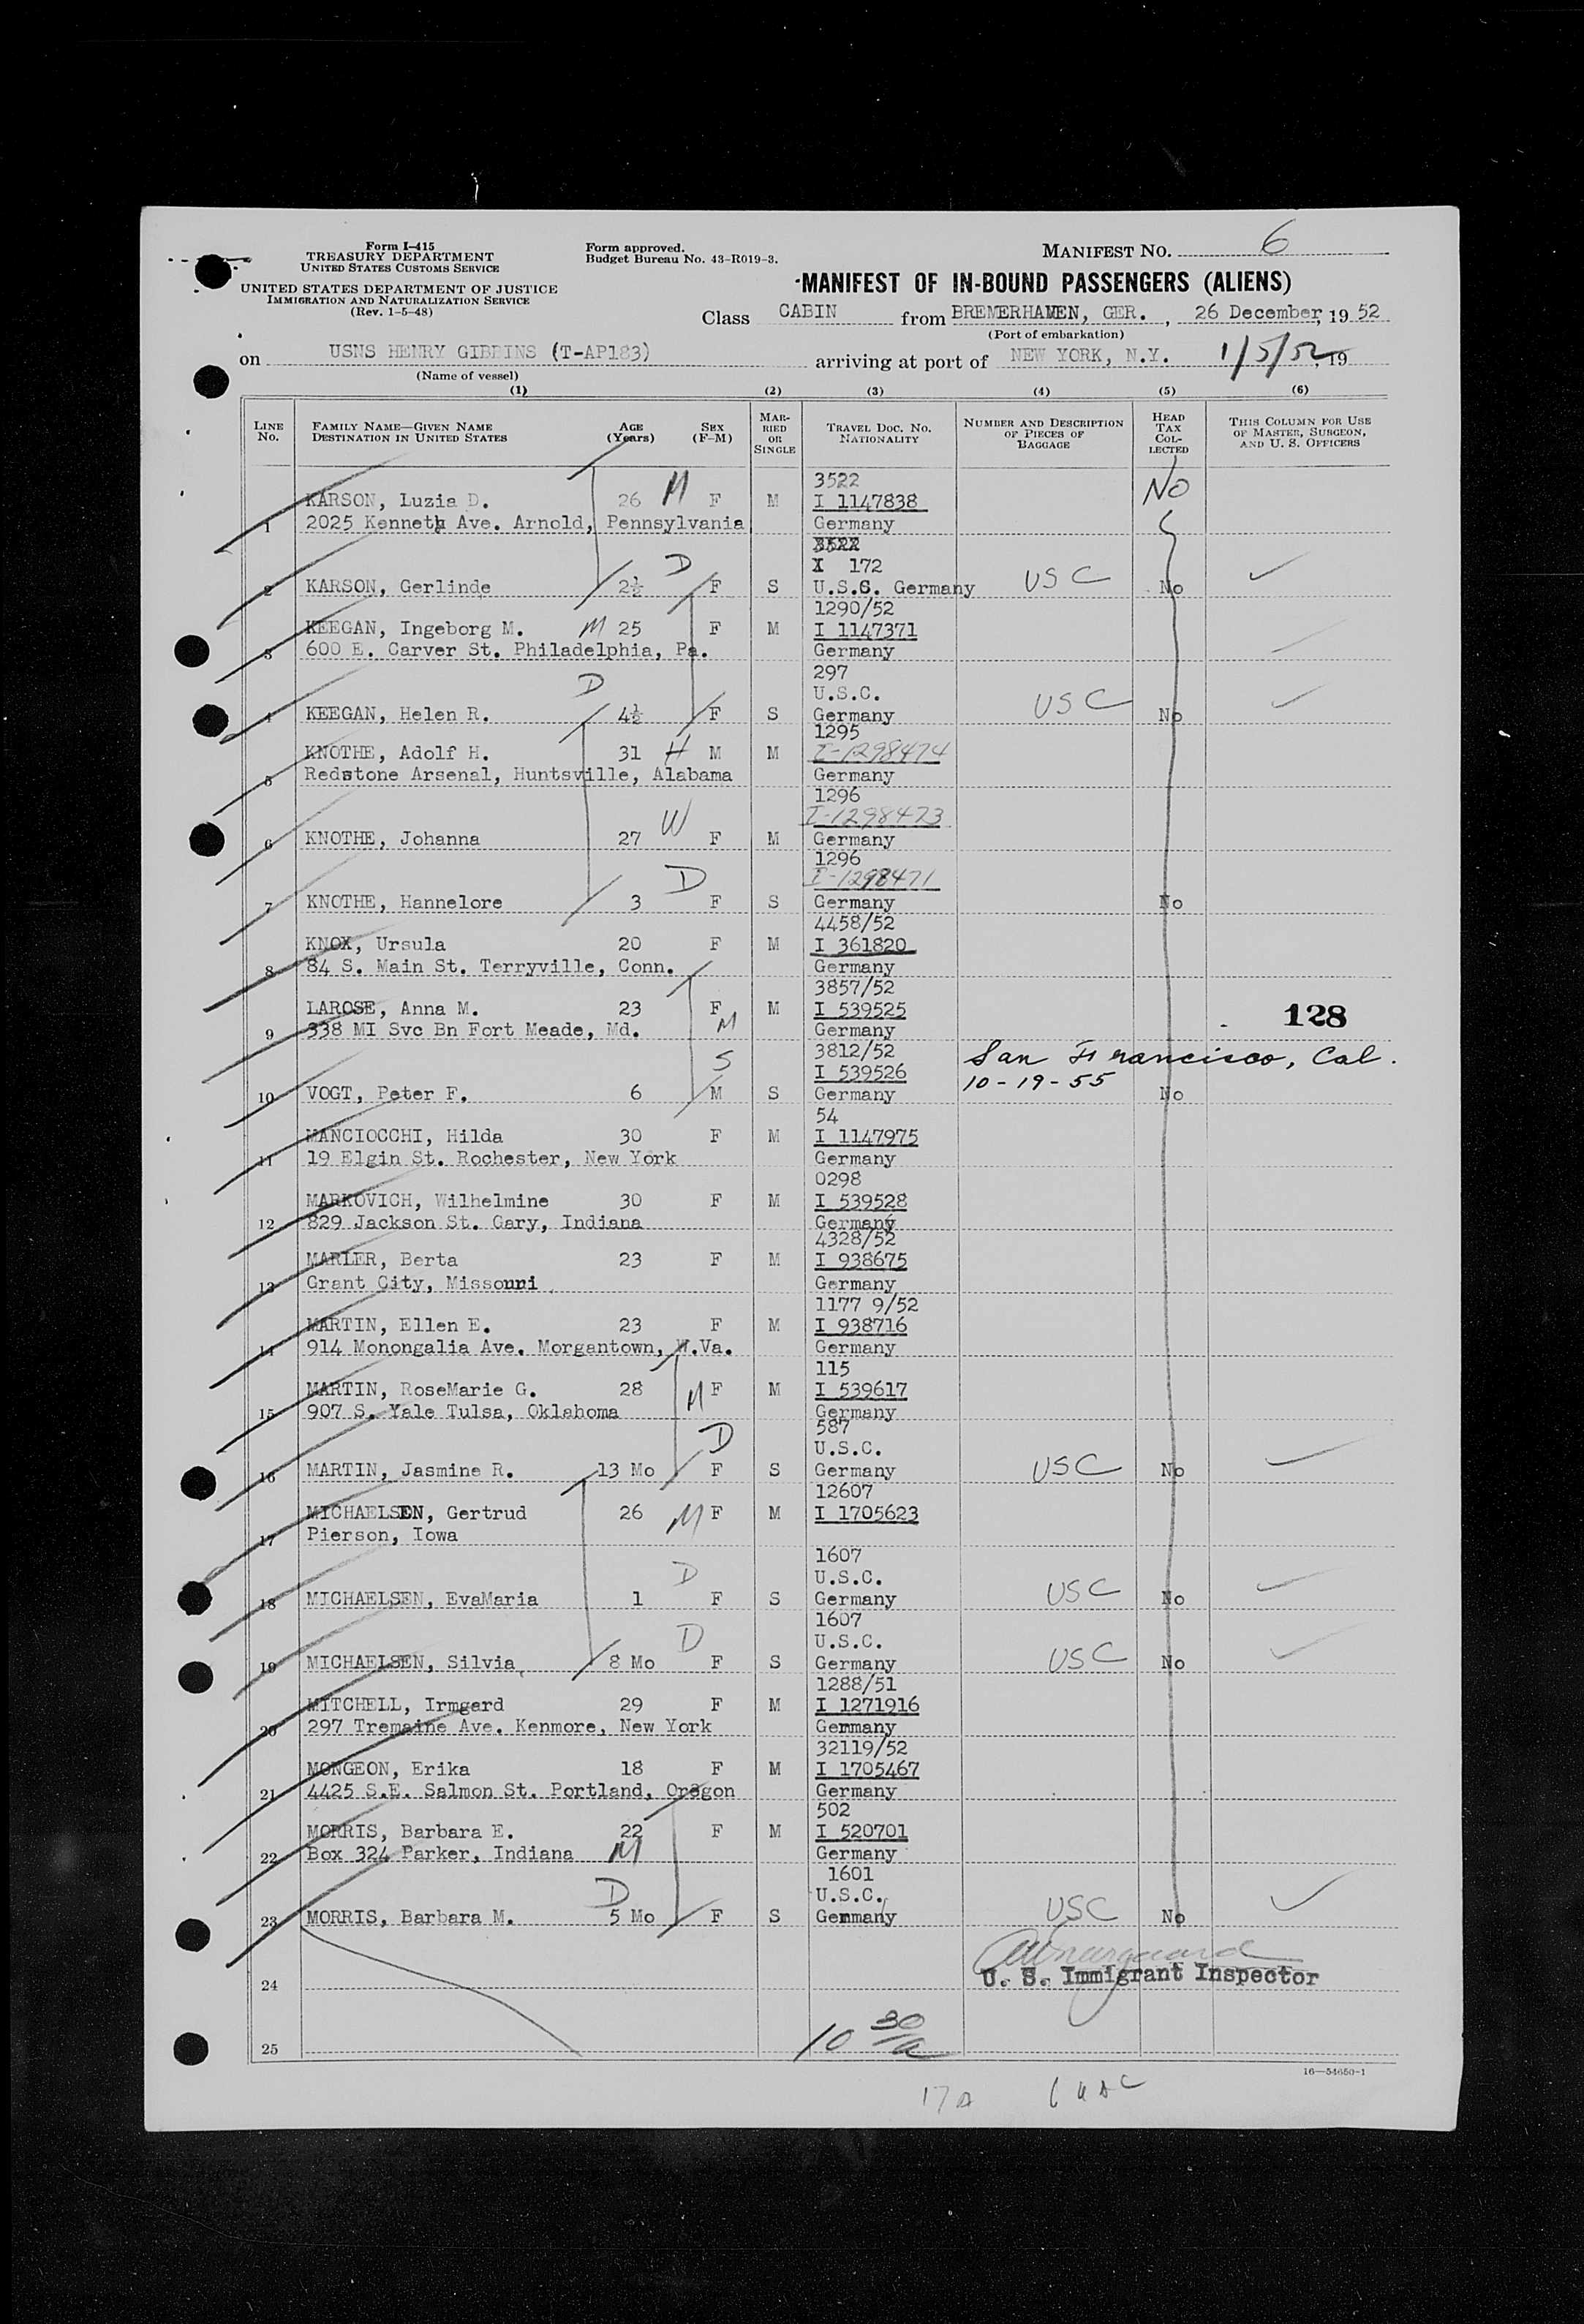 Form I-415
TREASURY DEPARTMENT
UNITED STATES CUSTOMS SERVICE
UNITED STATES DEPARTMENT OF JUSTICE
IMMIGRATION AND NATURALIZATION SERVICE
(Rev. 1-5-48)
Form approved.
Budget Bureau No. 43-R019-3.
MANIFEST NO. 6
MANIFEST OF IN-BOUND PASSENGERS (ALIENS)
Class CABIN from BREMERHAVEN, GER., 26 December, 19 52
(Port of embarkation)
on USNS HENRY GIBBINS (T-AP183) arriving at port of NEW YORK, N.Y. 1/5/52, 19
(Name of vessel)
(1) (2) (3) (4) (5) (6)
LINE No. FAMILY NAME—GIVEN NAME DESTINATION IN UNITED STATES AGE (Years) SEX (F-M) MARRIED OR SINGLE TRAVEL DOC. NO. NATIONALITY NUMBER AND DESCRIPTION OF PIECES OF BAGGAGE HEAD TAX COLLECTED THIS COLUMN FOR USE OF MASTER, SURGEON, AND U. S. OFFICERS
3522
KARSON, Luzia D. 26 M F M I 1147838 NO
1 2025 Kenneth Ave. Arnold, Pennsylvania Germany
3522
D I 172
2 KARSON, Gerlinde 2½ F S U.S.C. Germany USC No
1290/52
KEEGAN, Ingeborg M. M 25 F M I 1147371
3 600 E. Carver St. Philadelphia, Pa. Germany
297
D U.S.C.
4 KEEGAN, Helen R. 4½ F S Germany USC No
1295
KNOTHE, Adolf H. 31 H M M I-1298474
5 Redstone Arsenal, Huntsville, Alabama Germany
1296
W I-1298473
6 KNOTHE, Johanna 27 F M Germany
1296
D I-1298471
7 KNOTHE, Hannelore 3 F S Germany No
4458/52
KNOX, Ursula 20 F M I 361820
8 84 S. Main St. Terryville, Conn. Germany
3857/52
LAROSE, Anna M. 23 F M I 539525 128
9 338 MI Svc Bn Fort Meade, Md. M Germany
3812/52 San Francisco, Cal.
S I 539526 10-19-55
10 VOGT, Peter F. 6 M S Germany No
54
MANCIOCCHI, Hilda 30 F M I 1147975
11 19 Elgin St. Rochester, New York Germany
0298
MARKOVICH, Wilhelmine 30 F M I 539528
12 829 Jackson St. Gary, Indiana Germany
4328/52
MARLER, Berta 23 F M I 938675
13 Grant City, Missouri Germany
1177 9/52
MARTIN, Ellen E. 23 F M I 938716
14 914 Monongalia Ave. Morgantown, W.Va. Germany
115
MARTIN, RoseMarie G. 28 M F M I 539617
15 907 S. Yale Tulsa, Oklahoma Germany
587
D U.S.C.
16 MARTIN, Jasmine R. 13 Mo F S Germany USC No
12607
MICHAELSEN, Gertrud 26 M F M I 1705623
17 Pierson, Iowa
1607
D U.S.C.
18 MICHAELSEN, EvaMaria 1 F S Germany USC No
1607
D U.S.C.
19 MICHAELSEN, Silvia 8 Mo F S Germany USC No
1288/51
MITCHELL, Irmgard 29 F M I 1271916
20 297 Tremaine Ave. Kenmore, New York Germany
32119/52
MONGEON, Erika 18 F M I 1705467
21 4425 S.E. Salmon St. Portland, Oregon Germany
502
MORRIS, Barbara E. 22 F M I 520701
22 Box 324 Parker, Indiana M Germany
1601
D U.S.C.
23 MORRIS, Barbara M. 5 Mo F S Germany USC No
24 U. S. Immigrant Inspector
10 30/a
25
16—54650-1
17 A 6 USC